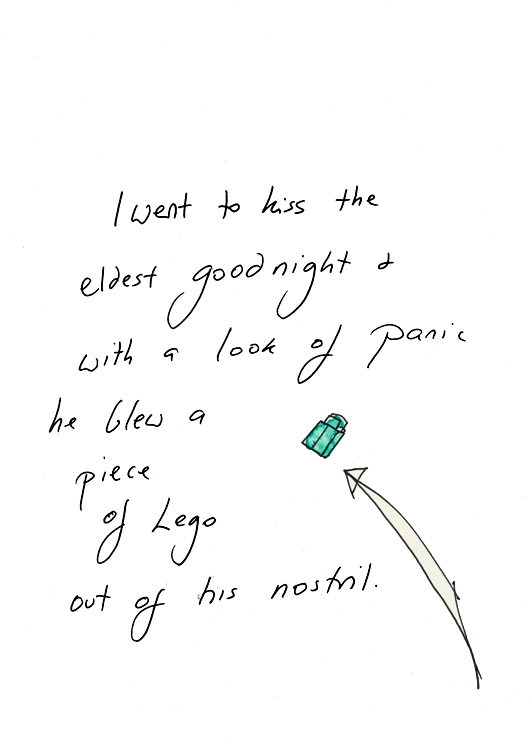 I went to kiss the
eldest goodnight &
with a look of panic
he blew a
piece
of Lego
out of his nostril.